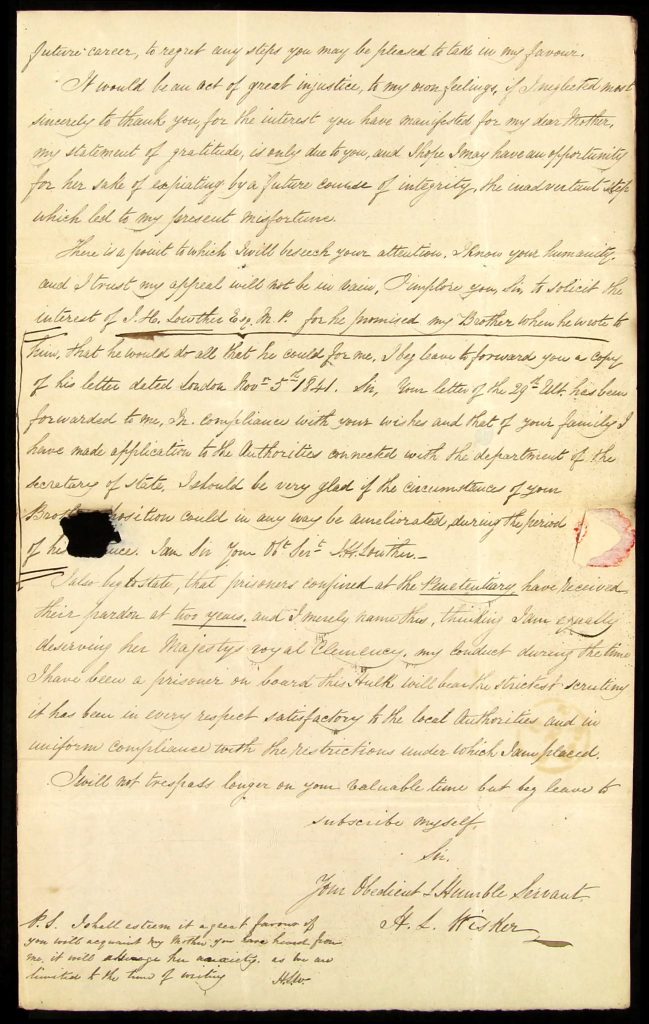 future career, to regret any steps you may be pleased to take in my favour.
It would be an act of great injustice, to my own feelings, if I neglected most
sincerely to thank you, for the interest you have manifested for my dear Mother,
my statement of gratitude, is only due to you, and I hope I may have an opportunity
for her sake of expiating by a future course of integrity, the inadvertant step
which led to my present misfortune.
There is a point to which I will beseech your attention. I know your humanity,
and I trust my appeal will not be in vain, I implore you, Sir, to solicit the
interest of J. H. Lowther Esq. M. P. for he promised my Brother when he wrote to
him, that he would do all that he could for me, I beg leave to forward you a copy
of his letter dated London Novr 5th 1841. Sir, Your letter of the 29th Ult. has been
forwarded to me, In compliance with your wishes and that of your family I
have made application to the Authorities connected with the department of the
secretary of state, I should be very glad if the circumstances of your
position could in any way be ameliorated, during the period
of his I am Sir Your Obt Servt J. H. Lowther.
I also beg to state, that prisoners confined at the Penetentiary, have received
their pardon at two years, and I merely name this, thinking I am equally
deserving her Majestys royal Clemency, my conduct during the time
I have been a prisoner on board this Hulk will bear the strictest scrutiny
it has been in every respect satisfactory to the local Authorities and in
uniform compliance with the restrictions under which I am placed.
I will not trespass longer on your valuable time but beg leave to
subscribe myself,
Sir.
Your Obedient & Humble Servant
H. L. Wisker
P.S. I shall esteem it a great favour if
you will acquaint my Mother you have heard from
me, it will assuage her anxiety, as we are
limited to the time of writing
H.L.W.